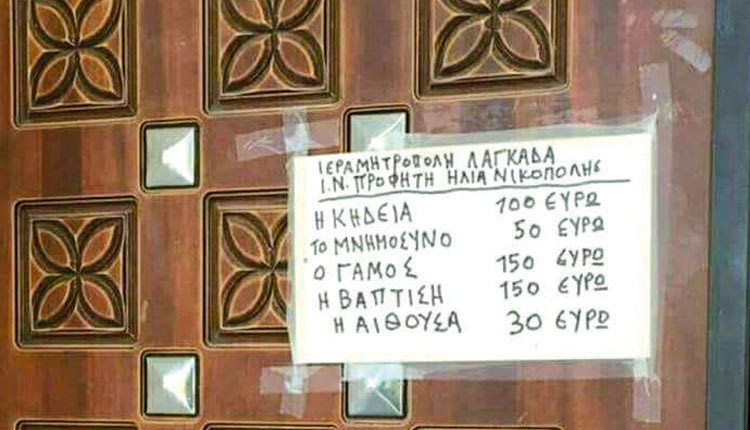 ΙΕΡΑΜΗΤΡΟΠΟΛΗ ΛΑΓΚΑΔΑ
Ι.Ν. ΠΡΟΦΗΤΗ ΗΛΙΑ ΝΙΚΟΠΟΛΗΣ
Η ΚΗΔΕΙΑ 100 ΕΥΡΩ
ΤΟ ΜΝΗΜΟΣΥΝΟ 50 ΕΥΡΩ
Ο ΓΑΜΟΣ 150 ΕΥΡΩ
Η ΒΑΠΤΙΣΗ 150 ΕΥΡΩ
Η ΑΙΘΟΥΣΑ 30 ΕΥΡΩ